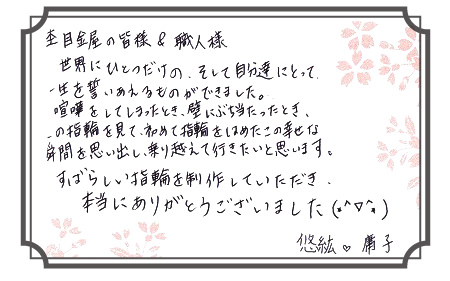 杢目金屋の皆様 & 職人様
世界にひとつだけの、そして自分達にとって、
一生を誓いあえるものができました。
喧嘩をしてしまったとき、壁にぶち当たったとき、
の指輪を見て、初めて指輪をはめたこの幸せな
時間を思い出し、乗り越えて行きたいと思います。
すばらしい指輪を制作していただき、
本当にありがとうございました(*^▽^*)
悠紘 ♡ 子